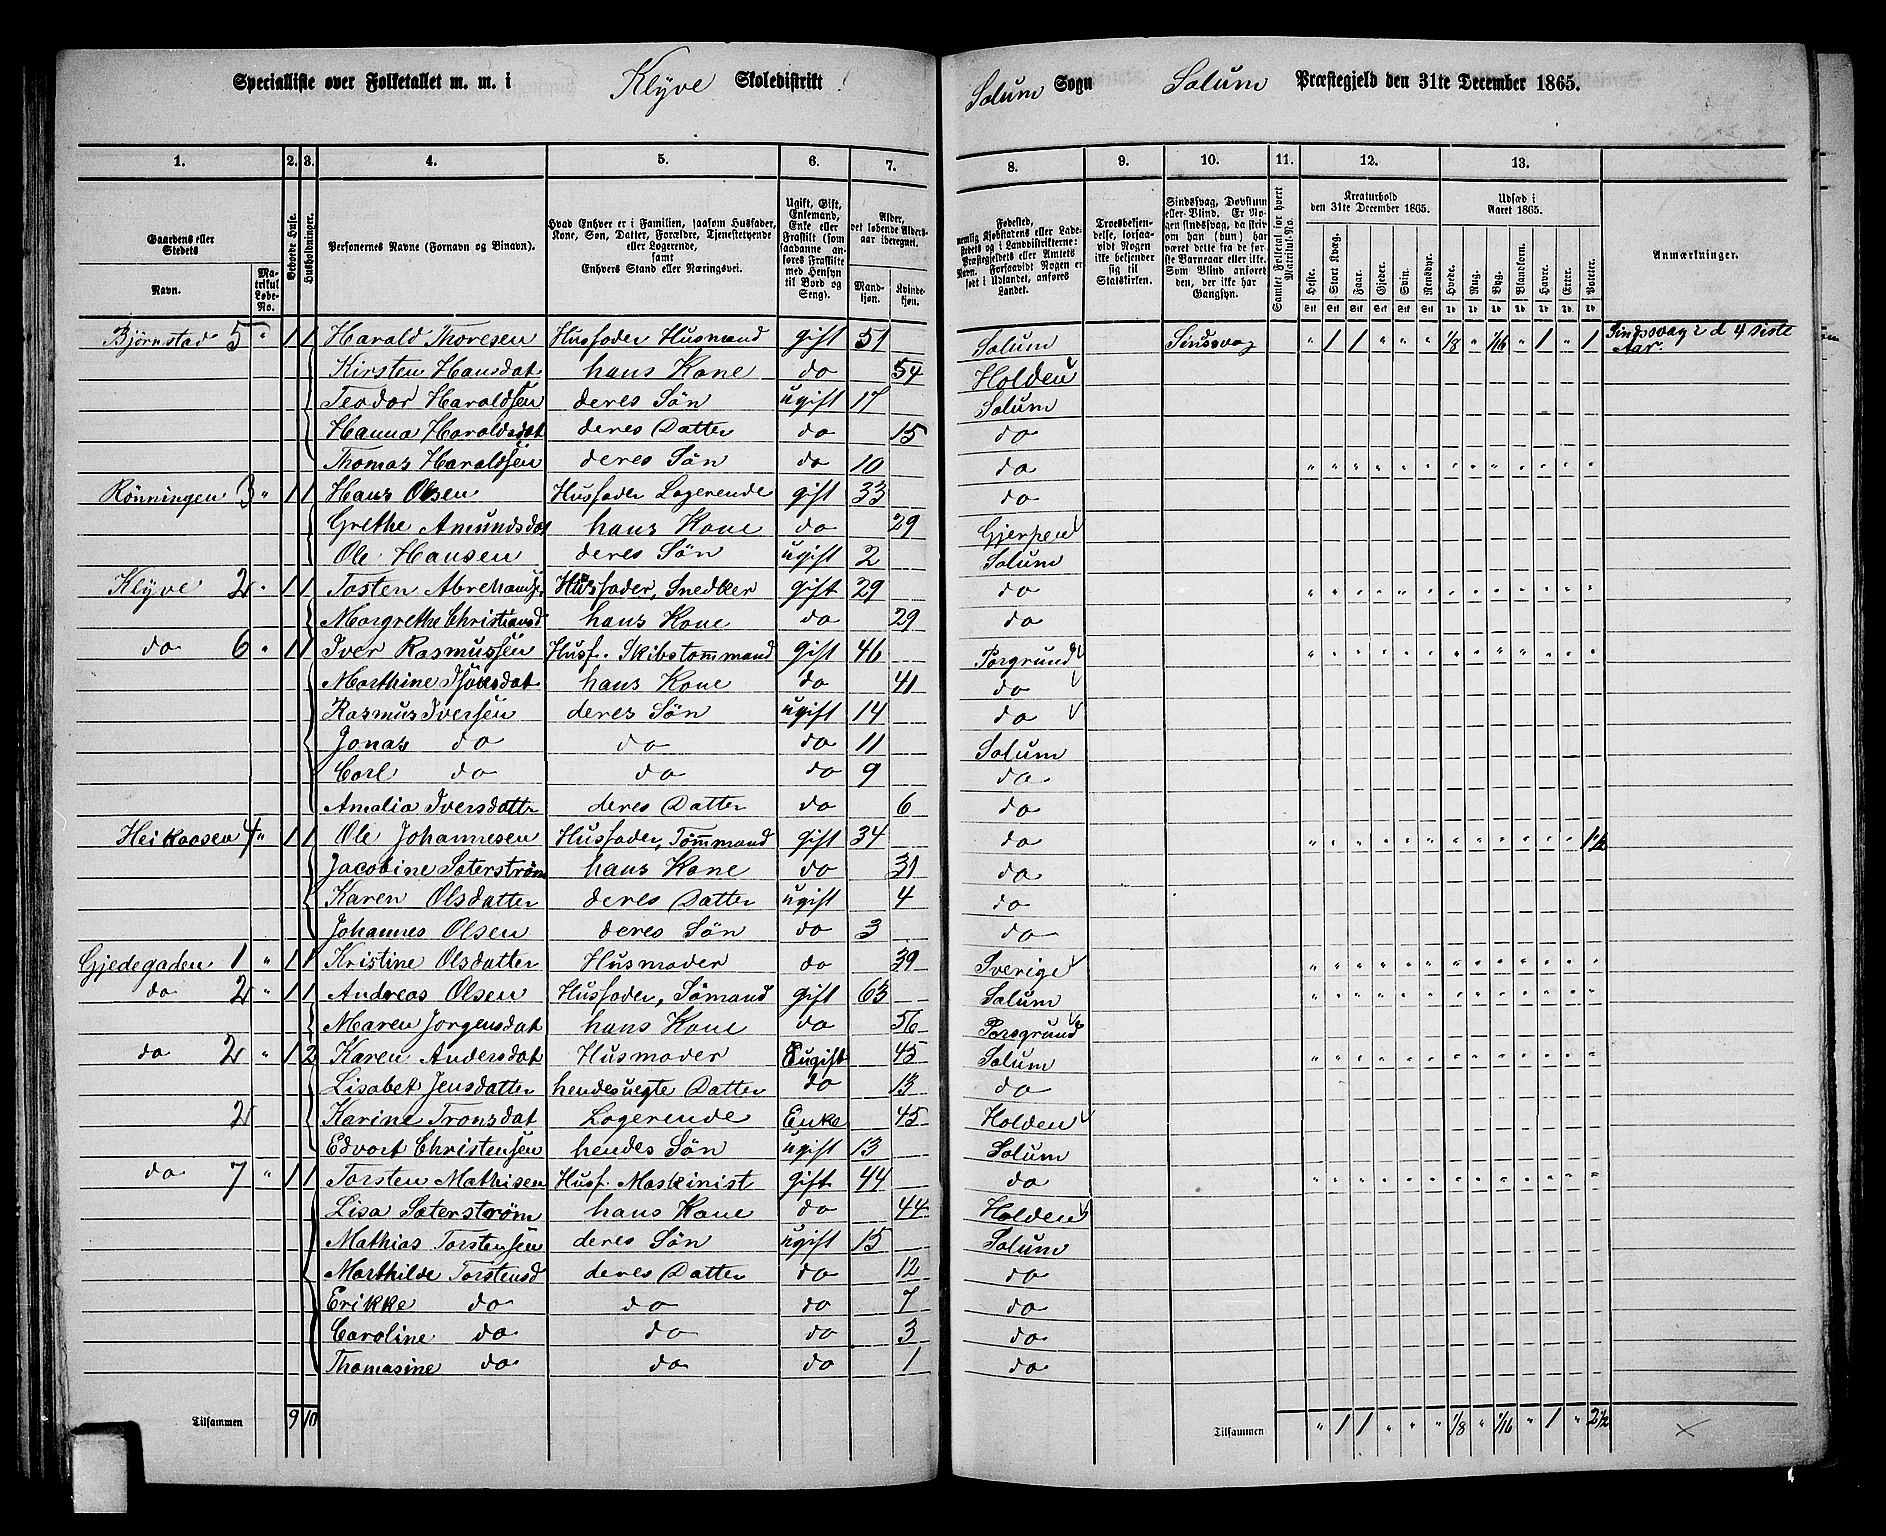 Specialliste over Folketallet m. m. i Klyve Skoledistrikt
Solum Sogn Solum Præstegjeld den 31te December 1865.
1. 2. 3. 4. 5. 6. 7.
8. 9. 10. 11. 12. 13.
Gaardens eller Stedets Navn.
Matrikul Løbe-No.
Beboede Huse.
Husholdninger.
Personernes Navne (Fornavn og Binavn).
Hvad Enhver er i Familien, saasom Husfader, Kone, Søn, Datter, Forældre, Tjenestetyende eller Logerende, samt Enhvers Stand eller Næringsvei.
Ugift, Gift, Enkemand, Enke eller Fraskilt (som saadanne anføres Fraskilte med Hensyn til Bord og Seng).
Alder, det løbende Alders-aar iberegnet.
Mandkjøn. Kvindekjøn.
Fødested,
Troesbekjendelse, forsaavidt Nogen ikke bekjender sig til Statskirken.
Sindssvag, Døvstum eller Blind. Er Nogen sindssvag, da skriv om han (hun) har været dette fra de første Barneaar eller ikke. Som Blind anføres den, der ikke har Gangsyn.
Samlet Folketal for hvert Matrikul-No.
Kreaturhold den 31te December 1865.
Heste. Stort Kvæg. Faar. Gjeder. Svin. Rensdyr.
Udsæd i Aaret 1865.
Hvede. Rug. Byg. Blandkorn. Havre. Erter. Poteter.
Anmærkninger.
Bjørnstad 5 " 1 1 Harald Thoresen Husfader Husmand gift 51 Solum Sindssvag " 1 1 " " " 1/8 " 1/16 " 1 " 1 Sindssvag i d 4 siste Aar.
Kirsten Hansdat hans Kone do 54 Holden
Teodor Haraldsen deres Søn ugift 17 Solum
Hanna Haraldsdat deres Datter do 15 do
Thomas Haraldsen deres Søn do 10 do
Rønningen 3 " 1 1 Hans Olsen Husfader Logerende gift 33 do
Grethe Amundsdat hans Kone do 29 Gjerpen
Ole Hansen deres Søn ugift 2 Solum
Klyve 2 " 1 1 Tosten Abrehams. Husfader, Snedker gift 29 do
Margrethe Christiansd hans Kone do 29 do
do 6 " 1 1 Iver Rasmussen Husf. Skibstømmand gift 46 Porsgrund
Marthine hans Kone do 41 do
Rasmus Iversen deres Søn ugift 14 do
Jonas do do do 11 Solum
Carl do do do 9 do
Amalia Iversdattr deres Datter do 6 do
Heikaasen 4 " 1 1 Ole Johannesen Husfader, Tømmand gift 34 do 1 1/2
Jacobine Säterstrøm hans Kone do 31 do
Karen Olsdatter deres Datter ugift 4 do
Johannes Olsen deres Søn do 3 do
Gjedegaden 1 " 1 1 Kristine Olsdatter Husmoder do 39 Sverige
do 2 " 1 1 Andreas Olsen Husfader, Sømand gift 63 Solum
Maren Jorgensdat hans Kone do 56 Porsgrund
do 2 " 1 2 Karen Andersdat Husmoder ugift 45 Solum
Lisabet Jensdatter hendes uegte Datter do 13 do
2 Karine Tronsdat Logerende Enke 45 Holden
Edvart Christensen hendes Søn ugift 13 Solum
do 7 " 1 1 Torsten Mathisen Husf. Maskinist gift 44 do
Lisa Säterstrøm hans Kone do 44 Holden
Mathias Torstensen deres Søn ugift 15 Solum
Marthilde Torstensd deres Datter do 12 do
Erikke do do do 7 do
Caroline do do do 3 do
Thomasine do do do 1 do
Tilsammen 9 10
Tilsammen " 1 1 " " " 1/8 " 1/16 " 1 " 2 1/2